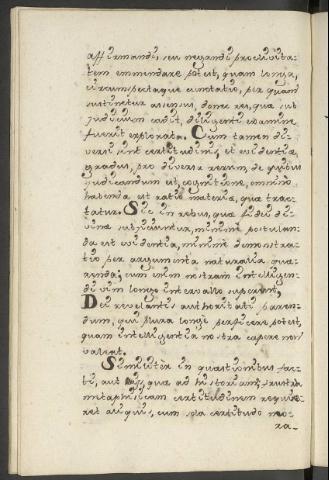 affirmandi, seu negandi proclivita-
tem emmendare potest, quam longa,
circumspectaque cunctatio, per quam
sustinetur assensus, donec res, quæ sub
judicium cadit, diligenti examine
fuerit explorata. Cum tamen di-
versi sint certitudinis, et evidentiæ
gradus, pro diversa rerum, de quibus
judicandum est, cognitione, omnino
habenda est ratio materiæ, quæ trac-
tatur. Sic in rebus, quæ fidei di-
vinæ subjiciuntur, minime postulan-
da est evidentia, minime demonstra-
tio per argumenta naturalia quæ-
renda; cum enim nostram intelligen-
di vim longo intervallo superent,
Dei revelantis authoritati paren-
dum, qui plura longe perspicere potest,
quam intelligentia nostra capere non
valeat.
Similiter in quæstionibus fac-
ti, aut quæ ad historiam, frustra
metaphisicam certitudinem requi-
ret aliquis, cum sola certitudo mo-
ra-